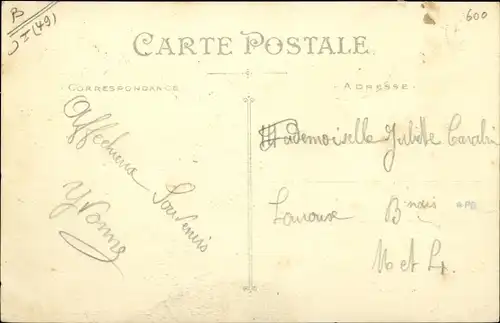 B
I (49)
600
CARTE POSTALE
CORRESPONDANCE
ADRESSE
Affectueux Souvenirs
Yvonne
Mademoiselle Juliette Cavalin
Louroux B nais
M et L.